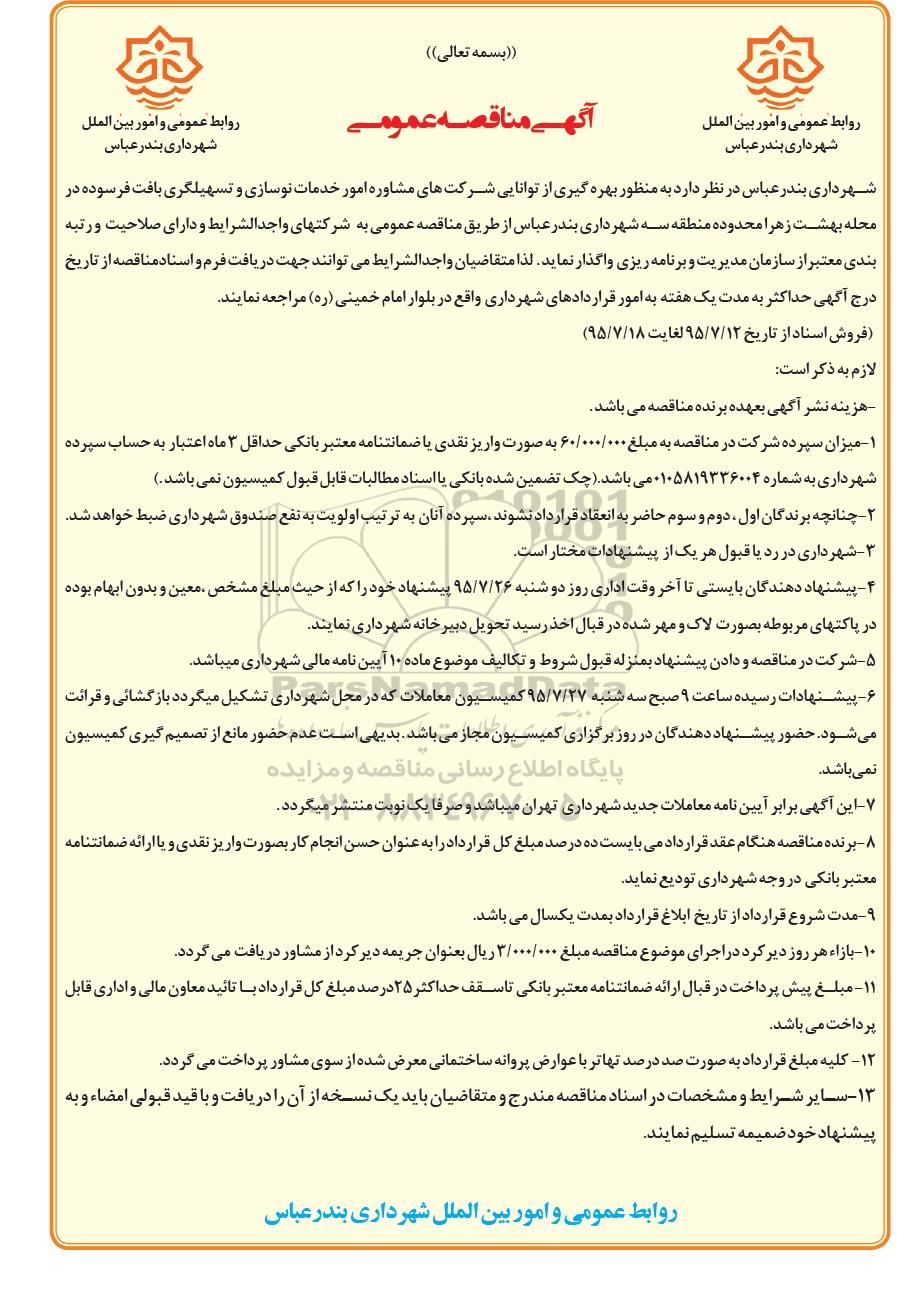 ((بسمه تعالی))
روابط عمومی و امور بین الملل
شهرداری بندرعباس
روابط عمومی و امور بین الملل
شهرداری بندرعباس
آگهی مناقصه عمومی
شهرداری بندرعباس در نظر دارد به منظور بهره گیری از توانایی شرکت های مشاوره امور خدمات نوسازی و تسهیلگری بافت فرسوده در
محله بهشت زهرا محدوده منطقه سه شهرداری بندرعباس از طریق مناقصه عمومی به شرکتهای واجدالشرایط و دارای صلاحیت و رتبه
بندی معتبر از سازمان مدیریت و برنامه ریزی واگذار نماید. لذا متقاضیان واجدالشرایط می توانند جهت دریافت فرم و اسناد مناقصه از تاریخ
درج آگهی حداکثر به مدت یک هفته به امور قراردادهای شهرداری واقع در بلوار امام خمینی (ره) مراجعه نمایند.
(فروش اسناد از تاریخ ۹۵/۷/۱۲ لغایت ۹۵/۷/۱۸)
لازم به ذکر است:
-هزینه نشر آگهی بعهده برنده مناقصه می باشد.
۱-میزان سپرده شرکت در مناقصه به مبلغ ۶۰/۰۰۰/۰۰۰ به صورت واریز نقدی یا ضمانتنامه معتبر بانکی حداقل ۳ ماه اعتبار به حساب سپرده
شهرداری به شماره ۰۱۰۵۸۱۹۳۳۶۰۰۴می باشد.(چک تضمین شده بانکی یا اسناد مطالبات قابل قبول کمیسیون نمی باشد.)
۲-چنانچه برندگان اول ، دوم و سوم حاضر به انعقاد قرارداد نشوند ،سپرده آنان به ترتیب اولویت به نفع صندوق شهرداری ضبط خواهد شد.
۳-شهرداری در رد یا قبول هر یک از پیشنهادات مختار است.
۴-پیشنهاد دهندگان بایستی تا آخر وقت اداری روز دوشنبه ۹۵/۷/۲۶ پیشنهاد خود را که از حیث مبلغ مشخص ،معین و بدون ابهام بوده
در پاکتهای مربوطه بصورت لاک و مهر شده در قبال اخذ رسید تحویل دبیرخانه شهرداری نمایند.
۵-شرکت در مناقصه و دادن پیشنهاد بمنزله قبول شروط و تکالیف موضوع ماده ۱۰ آیین نامه مالی شهرداری میباشد.
ParsNamadData
۶-پیشنهادات رسیده ساعت ۹ صبح سه شنبه ۹۵/۷/۲۷ کمیسیون معاملات که در محل شهرداری تشکیل میگردد بازگشائی و قرائت
می‌شود. حضور پیشنهاد دهندگان در روز برگزاری کمیسیون مجاز می باشد. بدیهی است عدم حضور مانع از تصمیم گیری کمیسیون
نمی‌باشد.
پایگاه اطلاع رسانی مناقصه و مزایده
۷-این آگهی برابر آیین نامه معاملات جدید شهرداری تهران میباشد و صرفا یک نوبت منتشر میگردد .
۰۲۱-۸۸۳۴۹۶۷۰-۵
۸-برنده مناقصه هنگام عقد قرارداد می بایست ده درصد مبلغ کل قرارداد را به عنوان حسن انجام کار بصورت واریز نقدی و یا ارائه ضمانتنامه
معتبر بانکی در وجه شهرداری تودیع نماید.
۹-مدت شروع قرارداد از تاریخ ابلاغ قرارداد بمدت یکسال می باشد.
۱۰-بازاء هر روز دیر کرد در اجرای موضوع مناقصه مبلغ ۳/۰۰۰/۰۰۰ ریال بعنوان جریمه دیر کرد از مشاور دریافت می گردد.
۱۱-مبلغ پیش پرداخت در قبال ارائه ضمانتنامه معتبر بانکی تا سقف حداکثر ۲۵درصد مبلغ کل قرارداد با تائید معاون مالی و اداری قابل
پرداخت می باشد.
۱۲- کلیه مبلغ قرارداد به صورت صد درصد تهاتر با عوارض پروانه ساختمانی معرض شده از سوی مشاور پرداخت می گردد.
۱۳-سایر شرایط و مشخصات در اسناد مناقصه مندرج و متقاضیان باید یک نسخه از آن را دریافت و با قید قبولی امضاء و به
پیشنهاد خود ضمیمه تسلیم نمایند.
روابط عمومی و امور بین الملل شهرداری بندرعباس